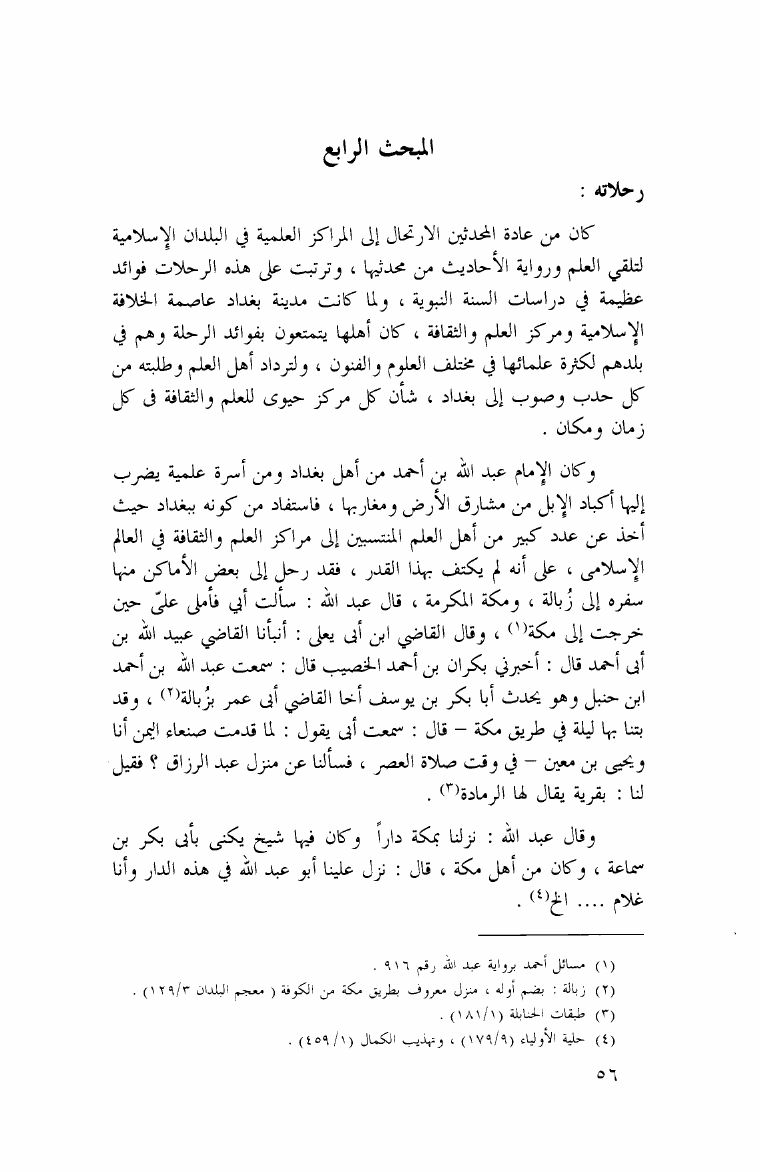 المبحث الرابع
رحلاته :
كان من عادة المحدثين الارتحال إلى المراكز العلمية في البلدان الإسلامية
لتلقي العلم ورواية الأحاديث من محدثيها ، وترتبت على هذه الرحلات فوائد
عظيمة في دراسات السنة النبوية ، ولما كانت مدينة بغداد عاصمة الخلافة
الإسلامية ومركز العلم والثقافة ، كان أهلها يتمتعون بفوائد الرحلة وهم في
بلدهم لكثرة علمائها في مختلف العلوم والفنون ، ولترداد أهل العلم وطلبته من
كل حدب وصوب إلى بغداد ، شأن كل مركز حيوى للعلم والثقافة فى كل
زمان ومكان .
وكان الإمام عبد الله بن أحمد من أهل بغداد ومن أسرة علمية يضرب
إليها أكباد الإبل من مشارق الأرض ومغاربها ، فاستفاد من كونه ببغداد حيث
أخذ عن عدد كبير من أهل العلم المنتسبين إلى مراكز العلم والثقافة في العالم
الإسلامى ، على أنه لم يكتف بهذا القدر ، فقد رحل إلى بعض الأماكن منها
سفره إلى زُبالة ، ومكة المكرمة ، قال عبد الله : سألت أبي فأملى علىّ حين
خرجت إلى مكة(١) ، وقال القاضي ابن أبى يعلى : أنبأنا القاضي عبيد الله بن
أبى أحمد قال : أخبرني بكران بن أحمد الخصيب قال : سمعت عبد الله بن أحمد
ابن حنبل وهو يحدث أبا بكر بن يوسف أخا القاضي أبى عمر بزُبالة(٢) ، وقد
بتنا بها ليلة في طريق مكة – قال : سمعت أبى يقول : لما قدمت صنعاء اليمن أنا
ويحيى بن معين – في وقت صلاة العصر ، فسألنا عن منزل عبد الرزاق ؟ فقيل
لنا : بقرية يقال لها الرمادة(٣) .
وقال عبد الله : نزلنا بمكة داراً وكان فيها شيخ يكنى بأبى بكر بن
سماعة ، وكان من أهل مكة ، قال : نزل علينا أبو عبد الله في هذه الدار وأنا
غلام .... الخ(٤) .
(١) مسائل أحمد برواية عبد الله رقم ٩١٦ .
(٢) زبالة : بضم أوله ، منزل معروف بطريق مكة من الكوفة ( معجم البلدان ١٢٩/٣) .
(٣) طبقات الحنابلة (١٨١/١) .
(٤) حلية الأولياء (١٧٩/٩) ، وتهذيب الكمال (٤٥٩/١) .
٥٦